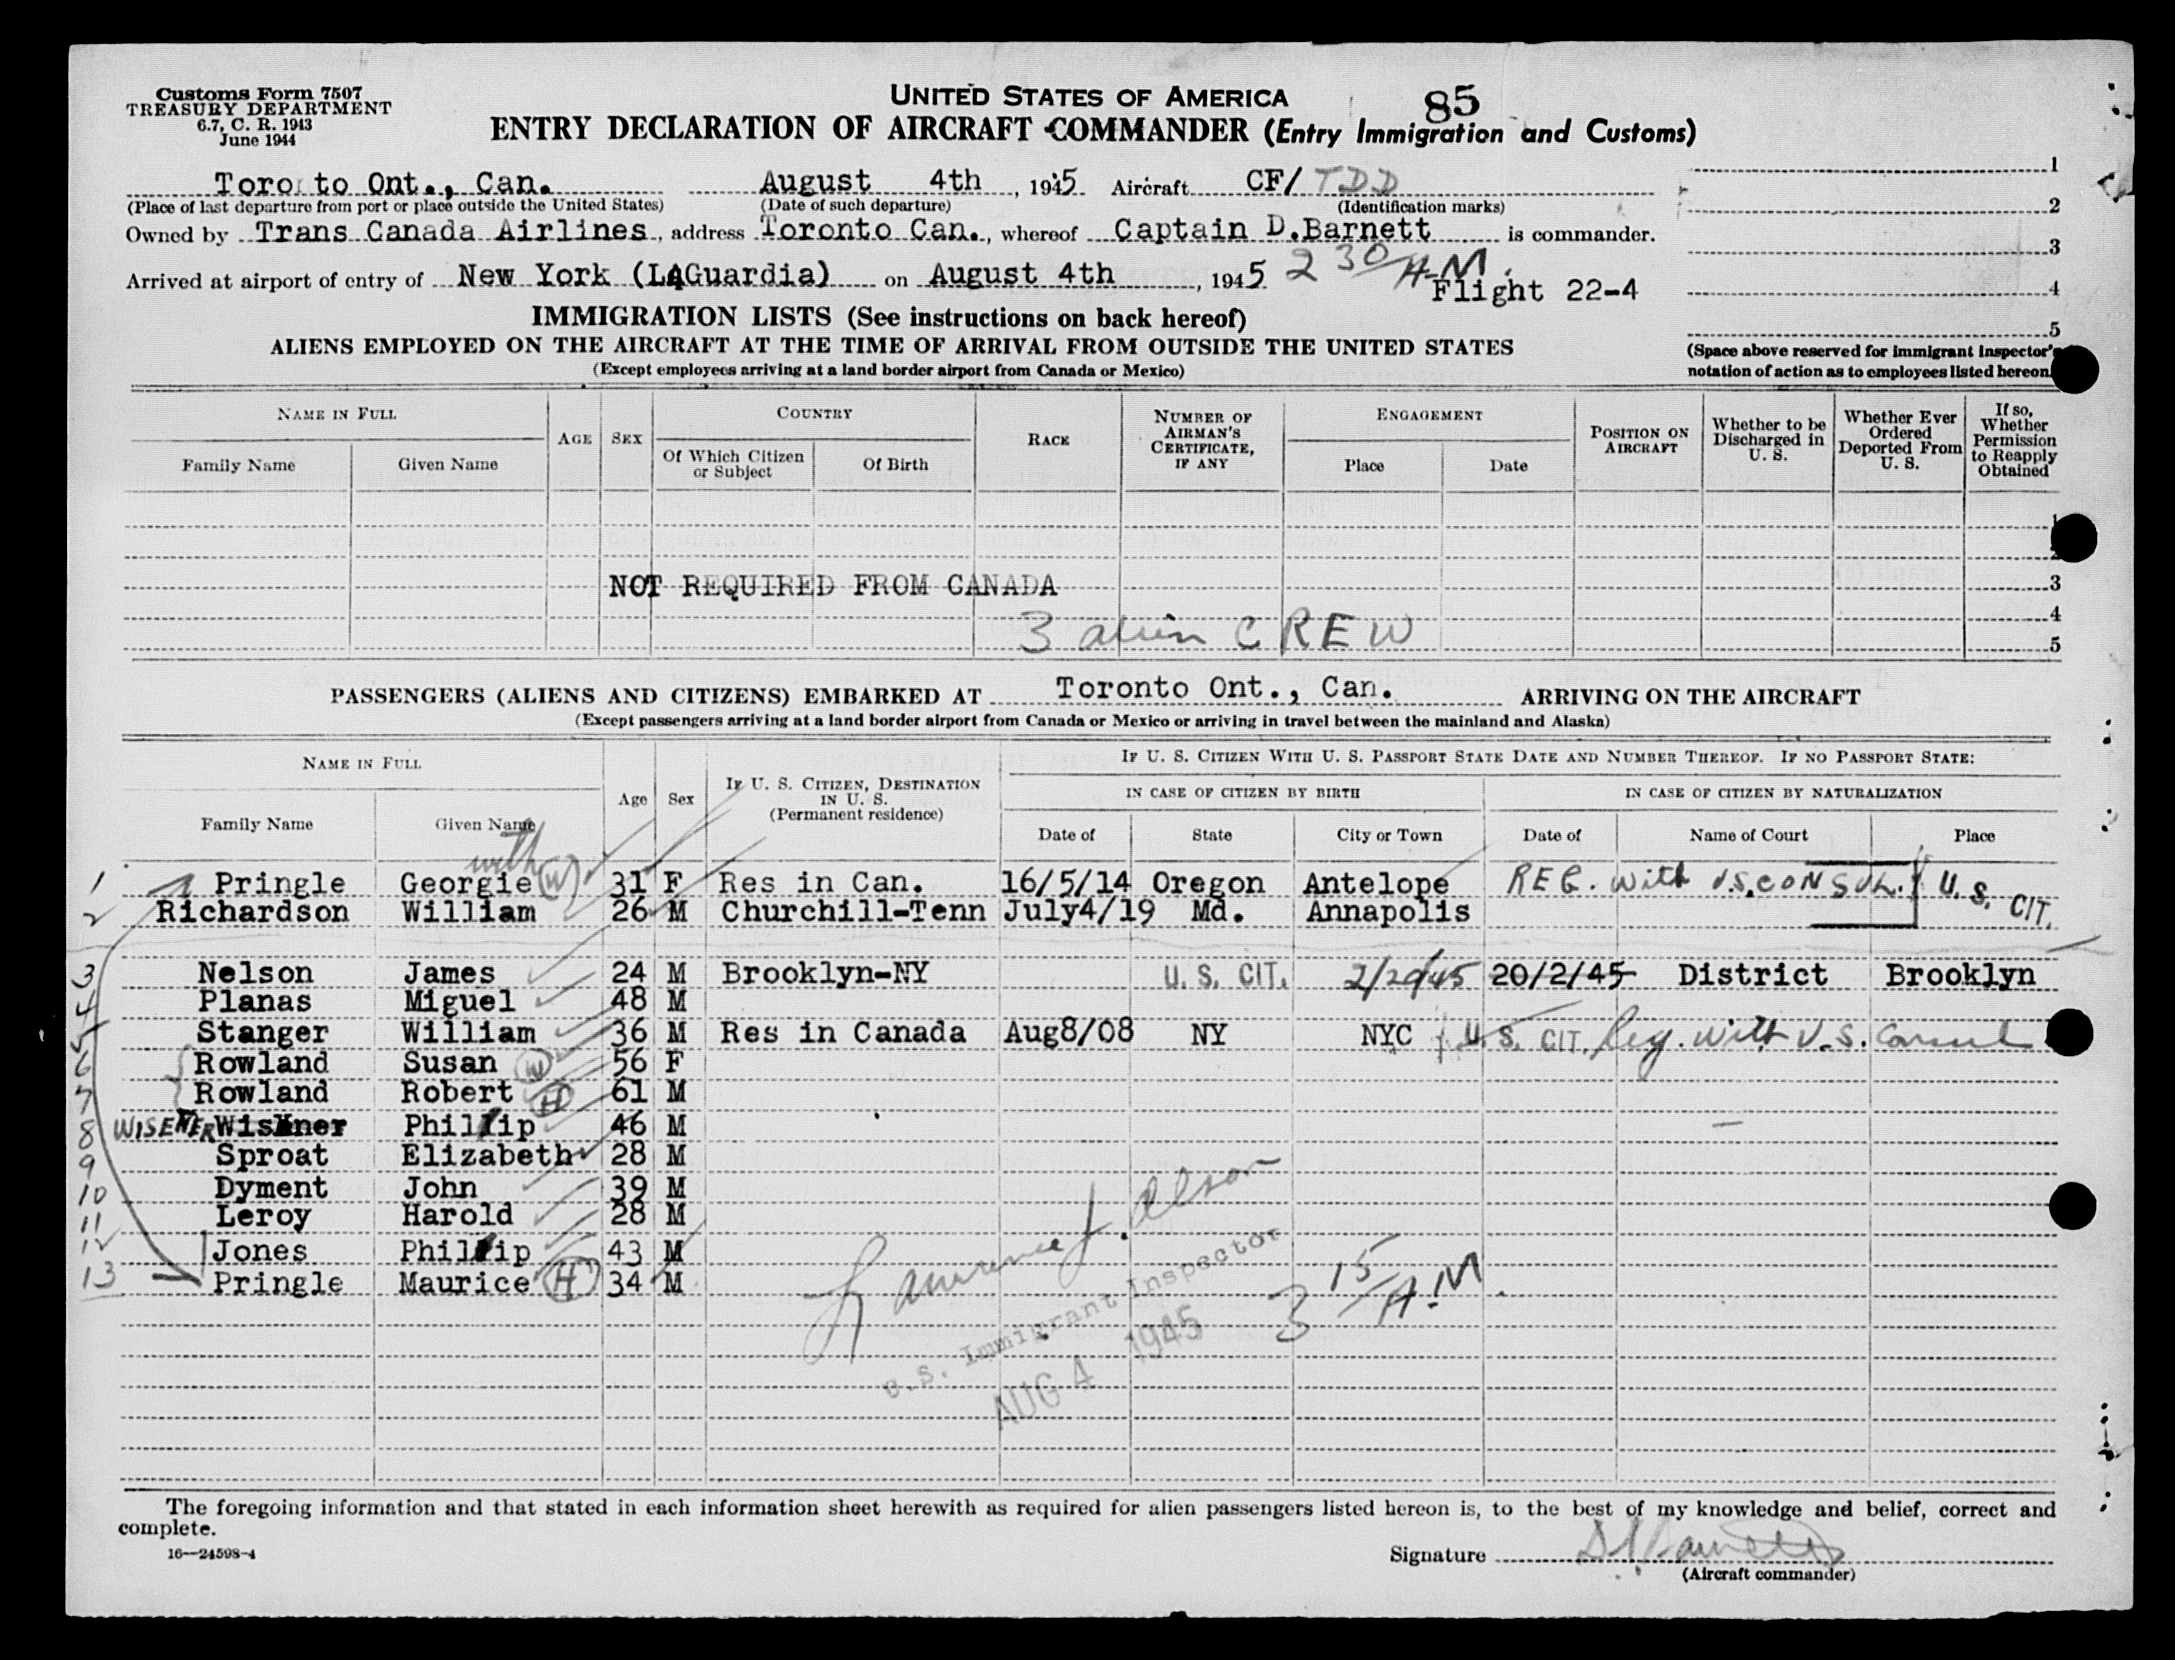 Customs Form 7507
TREASURY DEPARTMENT
6.7, C. R. 1943
June 1944
UNITED STATES OF AMERICA
85
ENTRY DECLARATION OF AIRCRAFT COMMANDER (Entry Immigration and Customs)
Toro to Ont., Can. August 4th, 1945 Aircraft CF/TDD
(Place of last departure from port or place outside the United States) (Date of such departure) (Identification marks)
Owned by Trans Canada Airlines, address Toronto Can., whereof Captain D.Barnett is commander.
Arrived at airport of entry of New York (LAGuardia) on August 4th, 1945 2 30/A-M.
Flight 22-4
1
2
3
4
5
(Space above reserved for immigrant inspector's
notation of action as to employees listed hereon.
IMMIGRATION LISTS (See instructions on back hereof)
ALIENS EMPLOYED ON THE AIRCRAFT AT THE TIME OF ARRIVAL FROM OUTSIDE THE UNITED STATES
(Except employees arriving at a land border airport from Canada or Mexico)
NAME IN FULL AGE SEX COUNTRY RACE NUMBER OF AIRMAN'S CERTIFICATE, IF ANY ENGAGEMENT POSITION ON AIRCRAFT Whether to be Discharged in U. S. Whether Ever Ordered Deported From U. S. If so, Whether Permission to Reapply Obtained
Family Name Given Name Of Which Citizen or Subject Of Birth Place Date
1
2
NOT REQUIRED FROM CANADA 3
3 alien CREW 4
5
PASSENGERS (ALIENS AND CITIZENS) EMBARKED AT Toronto Ont., Can. ARRIVING ON THE AIRCRAFT
(Except passengers arriving at a land border airport from Canada or Mexico or arriving in travel between the mainland and Alaska)
NAME IN FULL Age Sex IF U. S. CITIZEN, DESTINATION IN U. S. (Permanent residence) IF U. S. CITIZEN WITH U. S. PASSPORT STATE DATE AND NUMBER THEREOF. IF NO PASSPORT STATE:
IN CASE OF CITIZEN BY BIRTH IN CASE OF CITIZEN BY NATURALIZATION
Family Name Given Name Date of State City or Town Date of Name of Court Place
with
1 Pringle Georgie (W) 31 F Res in Can. 16/5/14 Oregon Antelope REG. with U.S. CONSUL. U. S. CIT.
2 Richardson William 26 M Churchill-Tenn July4/19 Md. Annapolis
3 Nelson James 24 M Brooklyn-NY U. S. CIT. 2/20/45 20/2/45 District Brooklyn
4 Planas Miguel 48 M
5 Stanger William 36 M Res in Canada Aug8/08 NY NYC U. S. CIT. Reg. with U.S. Consul
6 Rowland Susan (W) 56 F
7 Rowland Robert (H) 61 M
8 WISENER Wisner Phillip 46 M
9 Sproat Elizabeth 28 M
10 Dyment John 39 M
11 Leroy Harold 28 M
12 Jones Phillip 43 M
13 Pringle Maurice (H) 34 M
Lawrence J. Olson
U.S. Immigrant Inspector
AUG 4 1945
3 15/A.M.
The foregoing information and that stated in each information sheet herewith as required for alien passengers listed hereon is, to the best of my knowledge and belief, correct and
complete.
16—24598-4
Signature
(Aircraft commander)